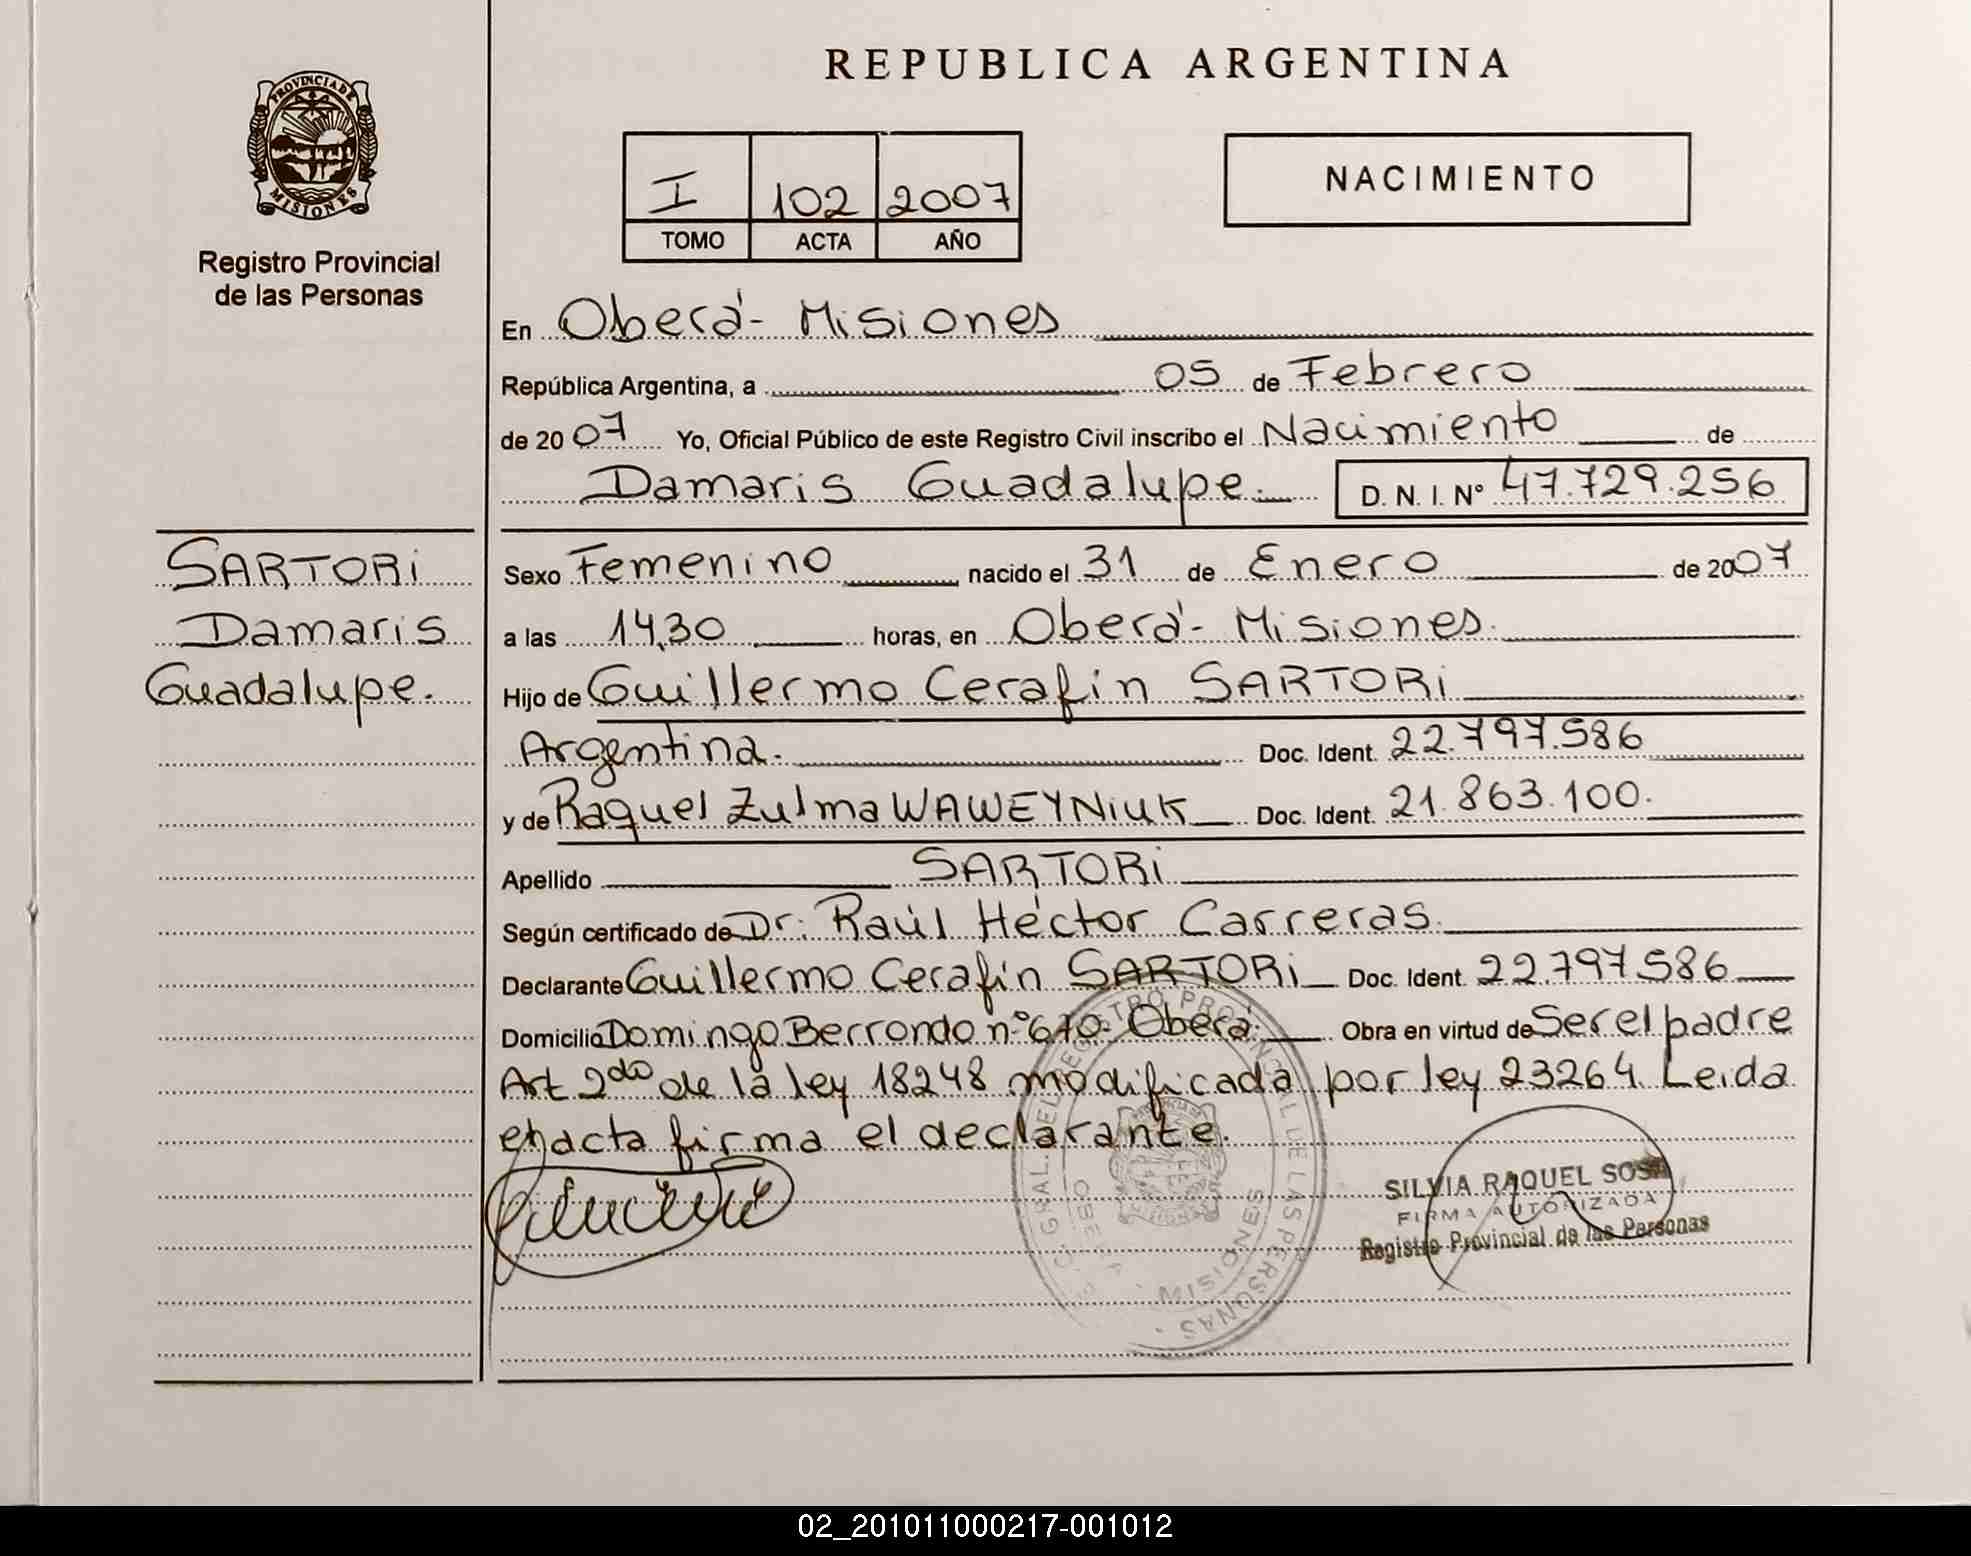 PROVINCIA DE
MISIONES
Registro Provincial
de las Personas
REPUBLICA ARGENTINA
I 102 2007
TOMO ACTA AÑO
NACIMIENTO
En Oberá - Misiones
República Argentina, a 05 de Febrero
de 2007 Yo, Oficial Público de este Registro Civil inscribo el Nacimiento de
Damaris Guadalupe. D. N. I. Nº 47.729.256
SARTORI
Damaris
Guadalupe.
Sexo Femenino nacido el 31 de Enero de 2007
a las 14,30 horas, en Oberá - Misiones.
Hijo de Guillermo Cerafin SARTORI
Argentina. Doc. Ident. 22.797.586
y de Raquel Zulma WAWEYNIUK Doc. Ident. 21.863.100.
Apellido SARTORI
Según certificado de Dr. Raúl Héctor Carreras.
Declarante Guillermo Cerafín SARTORI Doc. Ident. 22.797.586
Domicilio Domingo Berrondo nº 670. Oberá. Obra en virtud de Ser el padre
Art 2do de la ley 18248 modificada por ley 23264. Leida
exacta firma el declarante.
GRAL. DEL REGISTRO PROVINCIAL DE LAS PERSONAS
MISIONES
SILVIA RAQUEL SOSA
FIRMA AUTORIZADA
Registro Provincial de las Personas
02_201011000217-001012